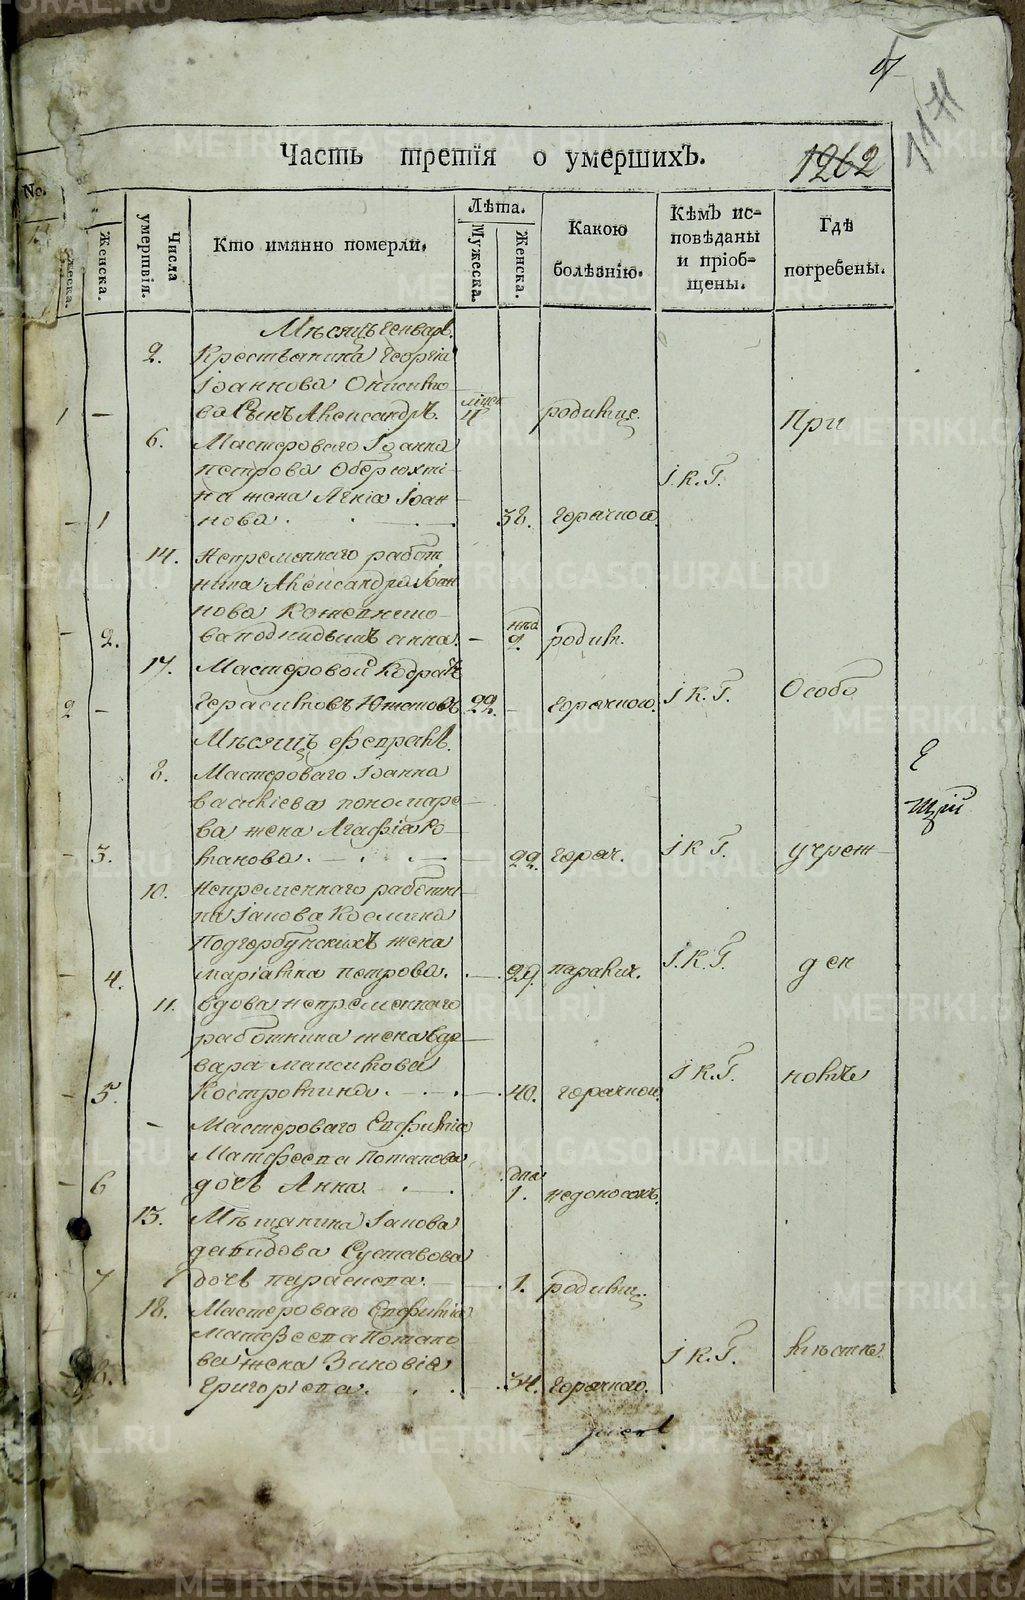 1171
Часть третія о умершихъ.
1262
No.
Жеска.
Женска.
Числа умершвія.
Кто имянно померли.
Лѣта.
Мужеска.
Женска.
Какою болѣзнію.
Кѣмъ исповѣданы и пріобщены.
Гдѣ погребены.
Мѣсяцъ Генварь.
2. Крестьянина Георгіа
Іоаннова
1 — сынъ Александръ. 4 родимце При
6. Мастероваго Іоанна
Петрова Оберюхти-
на жена Агніа Іоан-
І. К. Г.
— 1 нова. 38. горячкою.
14. Непременнаго работ
ника Александра Іоан
нова Кожевнико-
— 2. ва подкидышъ Анна. — 2 родим.
17. Мастеровой Кодратъ
2 — Герасимовъ 22. — горячкою. І К. Г. Особо
Мѣсяцъ Февраль.
8. Мастероваго Іоанна
Василіева Пономаре-
ва жена Агафіа Ро-
— 3. манова. 22. горяч. І К Г. учреж-
10. Непременнаго работни
ка Іакова Космина
Подгорбунскихъ жена
4. Маріамна Петрова. 29. паралич. І. К. Г. ден
11. Вдова непременнаго
работника жена Вар-
вара Максимова
— 5. Костромина. 40. горячкою. І К. Г. номъ
— Мастероваго Евфиміа
Матфеева Потапова
— 6 дочь Анна. дня 1. недоносокъ.
13. Мѣщанина Іакова
Давидова Суставова
7 дочь Параскева. 1. родимц.
18. Мастероваго Евфиміа
Матфеева Потапо-
ва жена Зиновіа
І К. Г. мѣстѣ.
8. Григоріева. 34. горячкою.
METRIKI.GASO-URAL.RU